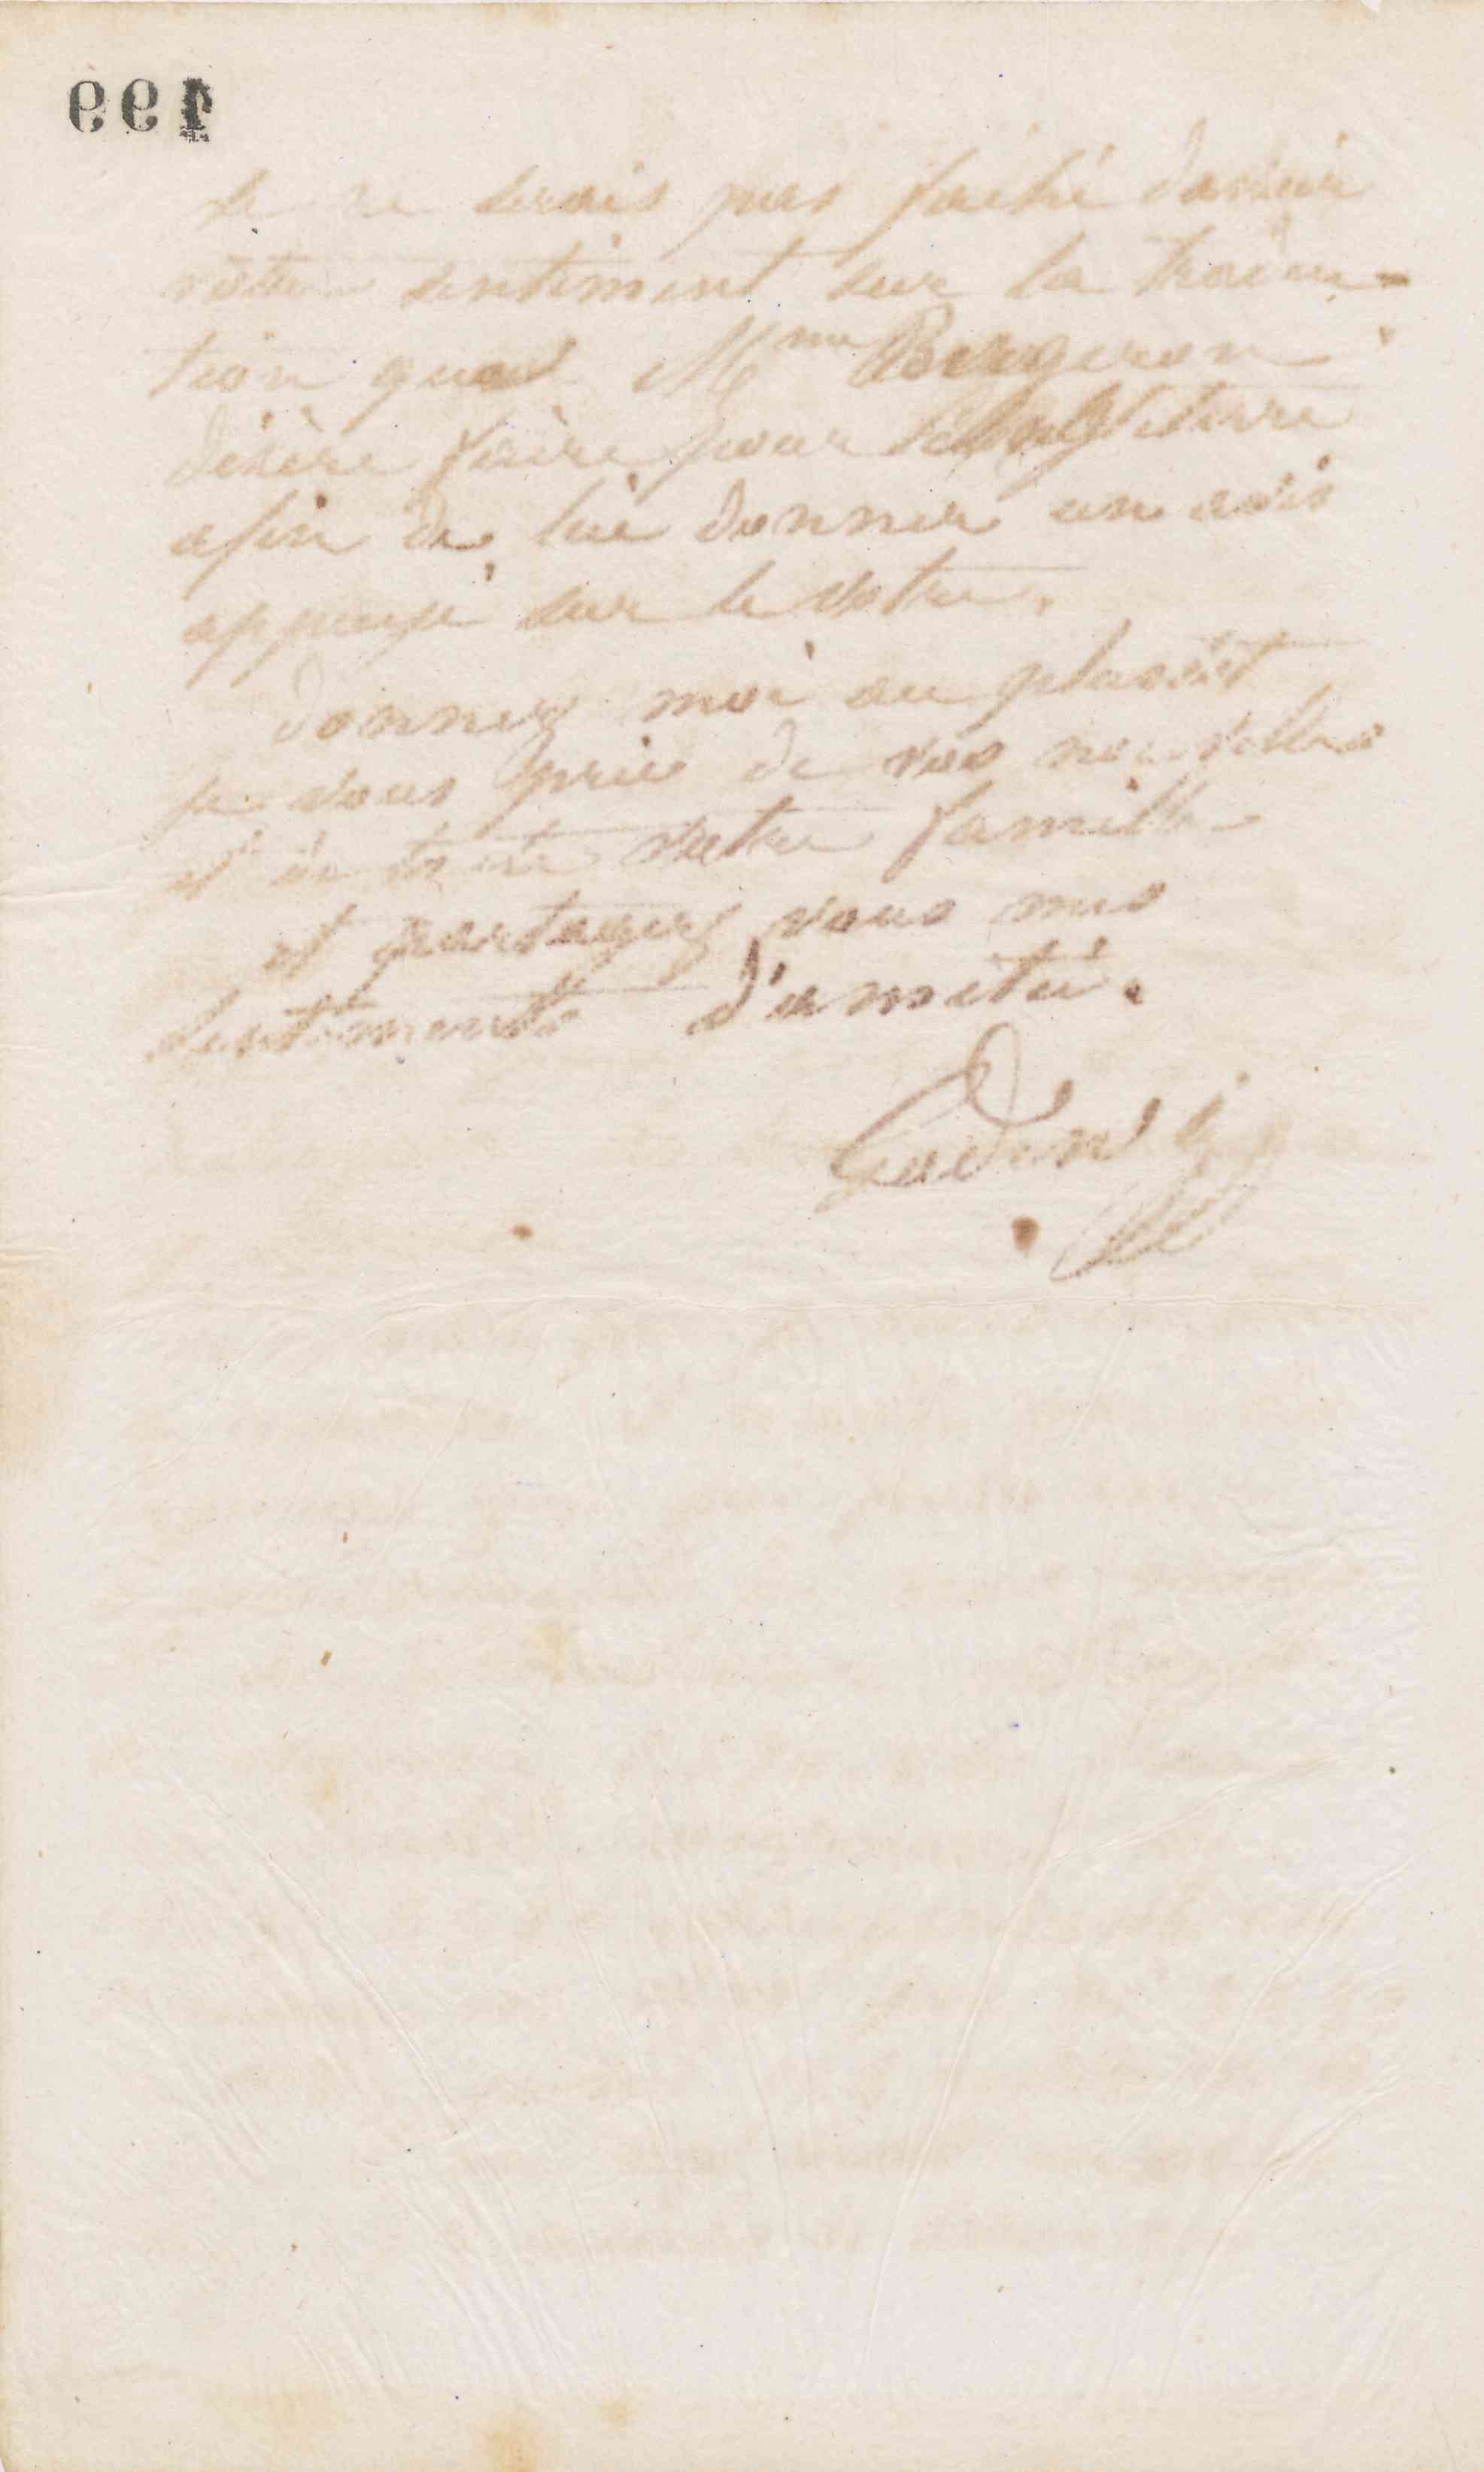 199
Je ne serais pas faché davoir
votre sentiment sur la traduc-
tion que Mme Bergeron
désire faire pour l'Angleterre
afin de lui donner un avis
appuyé sur le votre.
donnez moi au plustôt
je vous prie de vos nouvelles
et de toute votre famille
et partagez vous mes
sentiments d'amitié.
Godin